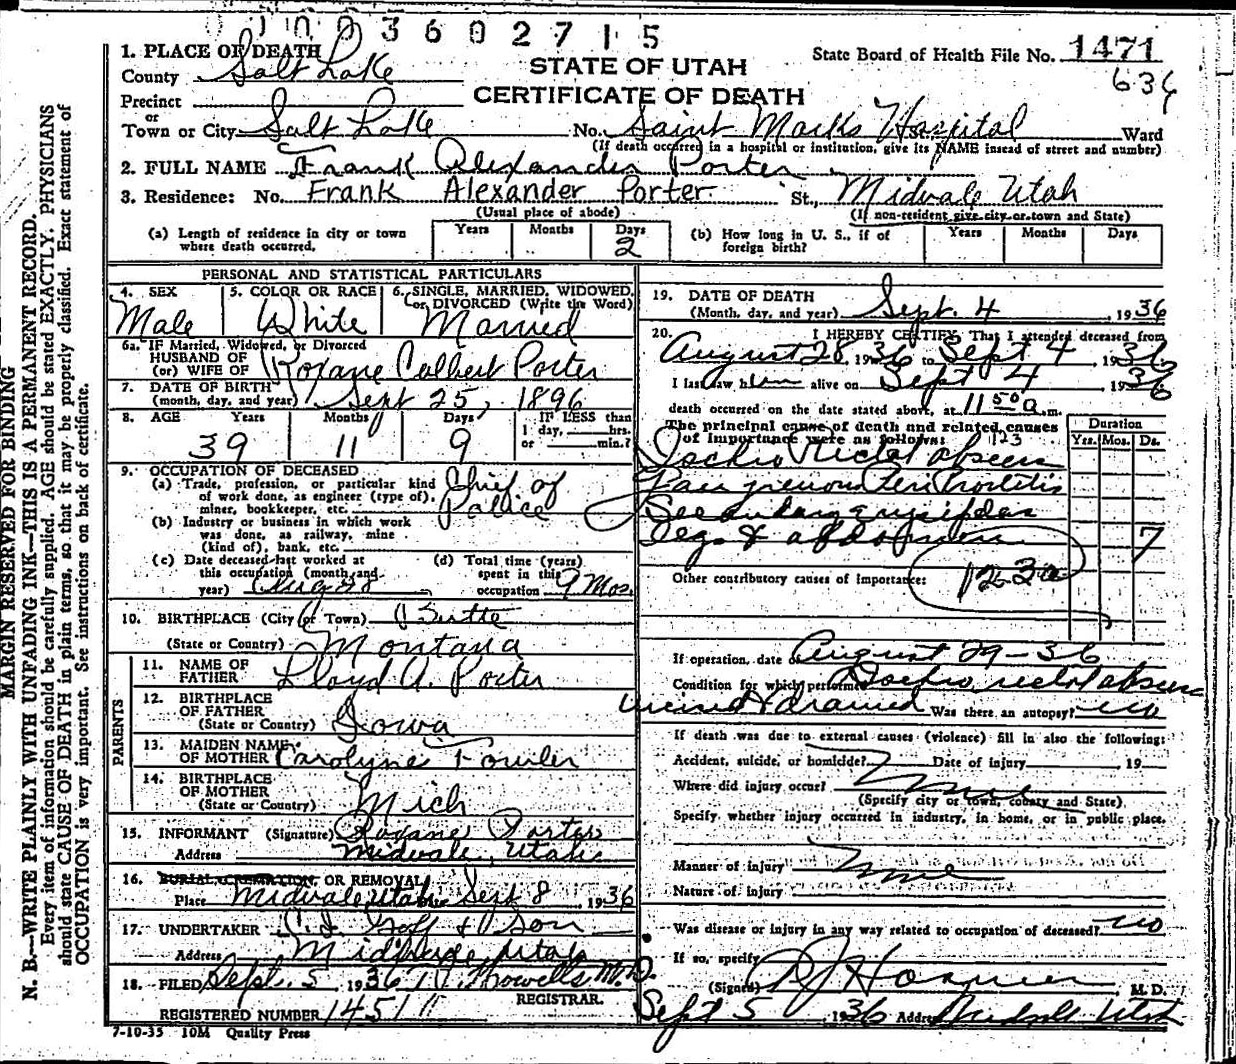 3602715
1. PLACE OF DEATH
County Salt Lake
STATE OF UTAH
CERTIFICATE OF DEATH
State Board of Health File No. 1471
636
Precinct
or
Town or City Salt Lake No. Saint Marks Hospital Ward
(If death occurred in a hospital or institution, give its NAME insead of street and number)
2. FULL NAME Frank Alexander Porter
3. Residence: No. Frank Alexander Porter St., Midvale Utah
(Usual place of abode) (If non-resident give city or town and State)
(a) Length of residence in city or town where death occurred. Years Months Days 2
(b) How long in U. S., if of foreign birth? Years Months Days
PERSONAL AND STATISTICAL PARTICULARS
4. SEX Male
5. COLOR OR RACE White
6. SINGLE, MARRIED, WIDOWED, or DIVORCED (Write the Word) Married
6a. IF Married, Widowed, or Divorced
HUSBAND OF
(or) WIFE OF Roxane Colbert Porter
7. DATE OF BIRTH
(month, day, and year) Sept 25, 1896
8. AGE Years 39 Months 11 Days 9
IF LESS than
1 day, hrs.
or min.?
9. OCCUPATION OF DECEASED
(a) Trade, profession, or particular kind
of work done, as engineer (type of),
miner, bookkeeper, etc. Chief of Police
(b) Industry or business in which work
was done, as railway, mine
(kind of), bank, etc.
(c) Date deceased last worked at
this occupation (month and
year) Aug 28
(d) Total time (years)
spent in this
occupation 9 Mos.
10. BIRTHPLACE (City or Town) Butte
(State or Country) Montana
PARENTS
11. NAME OF
FATHER Lloyd A. Porter
12. BIRTHPLACE
OF FATHER
(State or Country) Iowa
13. MAIDEN NAME
OF MOTHER Carolyne Fowler
14. BIRTHPLACE
OF MOTHER
(State or Country) Mich
15. INFORMANT (Signature) Roxane Porter
Address Midvale, Utah
16. BURIAL, CREMATION, OR REMOVAL
Place Midvale Utah Sept 8, 1936
17. UNDERTAKER Goff & Son
Address Midvale Utah
18. FILED Sept. 5 1936 Howells M.D.
REGISTRAR.
REGISTERED NUMBER 1451
7-10-35 10M Quality Press
19. DATE OF DEATH
(Month, day, and year) Sept. 4, 1936
20. I HEREBY CERTIFY, That I attended deceased from
August 28, 1936 to Sept 4, 1936
I last saw him alive on Sept 4, 1936
death occurred on the date stated above, at 11 50 a.m.
The principal cause of death and related causes
of importance were as follows: 123
Duration
Yrs. Mos. Ds.
Ischio rectal abscess
Gangrenous Periproctitis
Secondary erysipelas
legs & abdomen 7
Other contributory causes of importance: 123a
If operation, date of August 29-36
Condition for which performed Ischio rectal abscess
incised & drained Was there an autopsy? no
If death was due to external causes (violence) fill in also the following:
Accident, suicide, or homicide? Date of injury , 19
Where did injury occur?
(Specify city or town, county and State)
Specify whether injury occurred in industry, in home, or in public place.
Manner of injury
Nature of injury
Was disease or injury in any way related to occupation of deceased? no
If so, specify
(Signed) M. D.
Sept 5, 1936 Address Midvale Utah
MARGIN RESERVED FOR BINDING
N. B.—WRITE PLAINLY WITH UNFADING INK—THIS IS A PERMANENT RECORD.
Every item of information should be carefully supplied. AGE should be stated EXACTLY. PHYSICIANS
should state CAUSE OF DEATH in plain terms, so that it may be properly classified. Exact statement of
OCCUPATION is very important. See instructions on back of certificate.